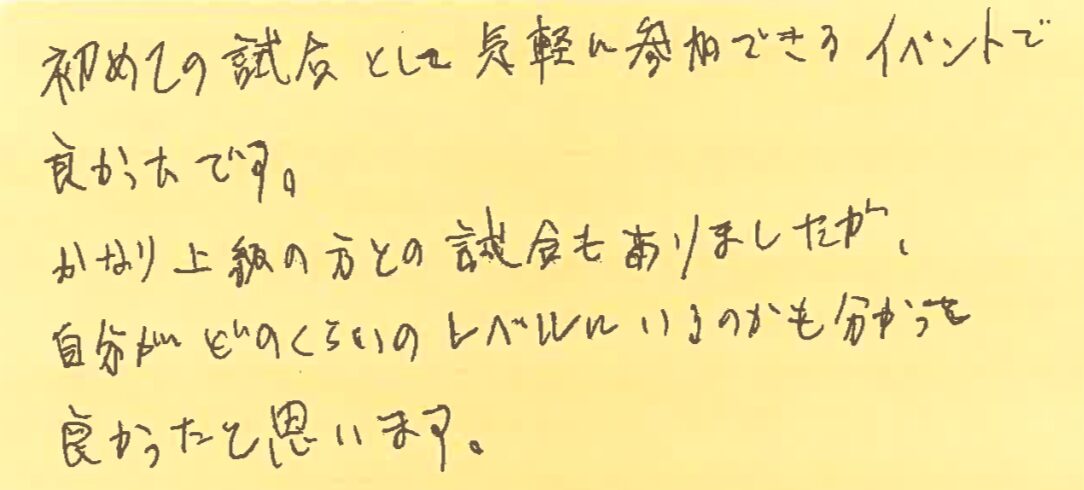 初めての試合として気軽に参加できるイベントで
良かったです。
かなり上級の方との試合もありましたが、
自分がどのくらいのレベルにいるのかも分かって
良かったと思います。